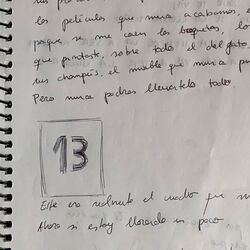 las películas que nunca acabamos,
porque se me caen los
que pintaste, sobre todo el del gato,
tus champús, el mueble que nunca
Pero nunca podras llevartelo todo.
13
Este era realmente el cuadro que
Ahora si estoy llorando un poco